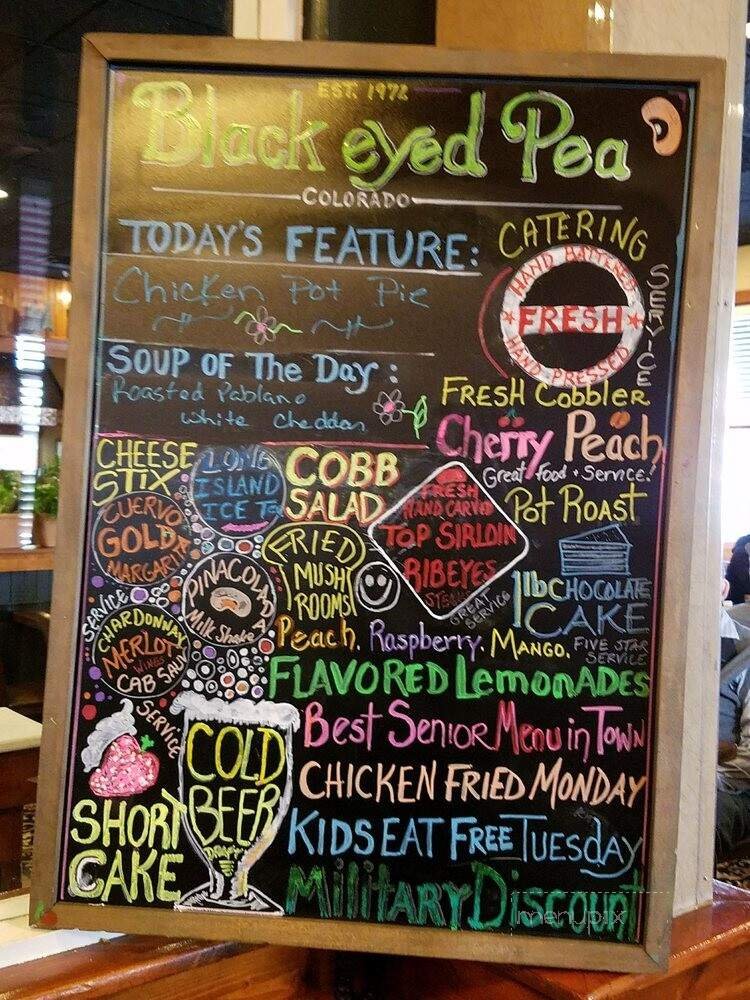 EST. 1972
Black eyed Pea
COLORADO
TODAY'S FEATURE:
Chicken Pot Pie
SOUP OF The DAY:
Roasted Pablano
White Cheddar
CATERING
SERVICE
HAND BATTERED
FRESH
HAND PRESSED
FRESH Cobbler
Cherry Peach
Great food + Service!
Pot Roast
CHEESE
STIX
LONG
ISLAND
ICE Tea
COBB
SALAD
FRESH
HAND CARVED
TOP SIRLOIN
RIBEYES
STEAKS
GREAT
SERVICE
CUERVO
GOLD
MARGARITA
FRIED
MUSH
ROOMS
PINACOLADA
Milk Shake
1lb CHOCOLATE
CAKE
FIVE STAR
SERVICE
SERVICE
CHARDONNAY
MERLOT
WINES
CAB SAUV
SERVICE
Peach. Raspberry. Mango.
FLAVORED LemonADES
Best Senior Menu in Town
CHICKEN FRIED MONDAY
KIDS EAT FREE TUESDAY
Military Discount
SHORT
CAKE
COLD
BEER
DRAFT
menupix